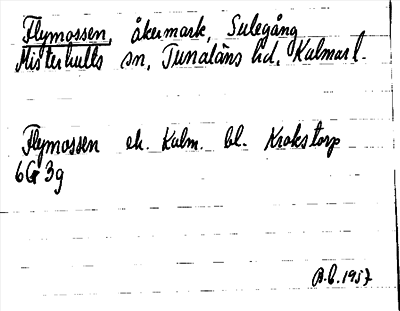 Flymossen, åkermark, Sulegång
Misterhults sn, Tunaläns hd, Kalmar l.
Flymossen ek. Kalm. bl. Krokstorp
6G 3g
B.C. 1957